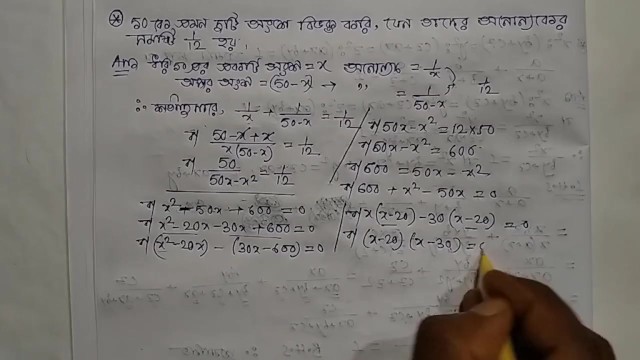 ⊛ 50 কে এমন দুটি অংশে বিভক্ত করি, যেন তাদের অন্যোন্যকের
সমষ্টি 1/12 হয়।
Ans ধরি 50 এর একটি অংশ = x অন্যোন্যক = 1/x
অপর অংশ = (50-x) → ,, = 1/50-x 1/12
∴ শর্তানুসারে, 1/x + 1/50-x = 1/12
বা 50-x+x/x(50-x) = 1/12
বা 50/50x-x² = 1/12
বা 50x-x² = 12×50
বা 50x-x² = 600
বা 600 = 50x - x²
বা 600 + x² - 50x = 0
বা x² - 50x + 600 = 0
বা x² - 20x - 30x + 600 = 0
বা (x²-20x) - (30x-600) = 0
বা x(x-20) - 30(x-20) = 0
বা (x-20) (x-30) = 0